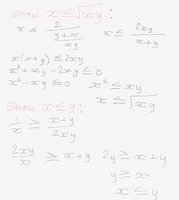 show x ≤ √xy :
x ≤ 2 / (y+x / xy)
x ≤ 2xy / x+y
x(x+y) ≤ 2xy
x² + xy - 2xy ≤ 0
x² - xy ≤ 0
x² ≤ xy
x ≤ √xy
Show x ≤ y :
1/x ≥ x+y / 2xy
2xy / x ≥ x+y
2y ≥ x+y
y ≥ x
x ≤ y